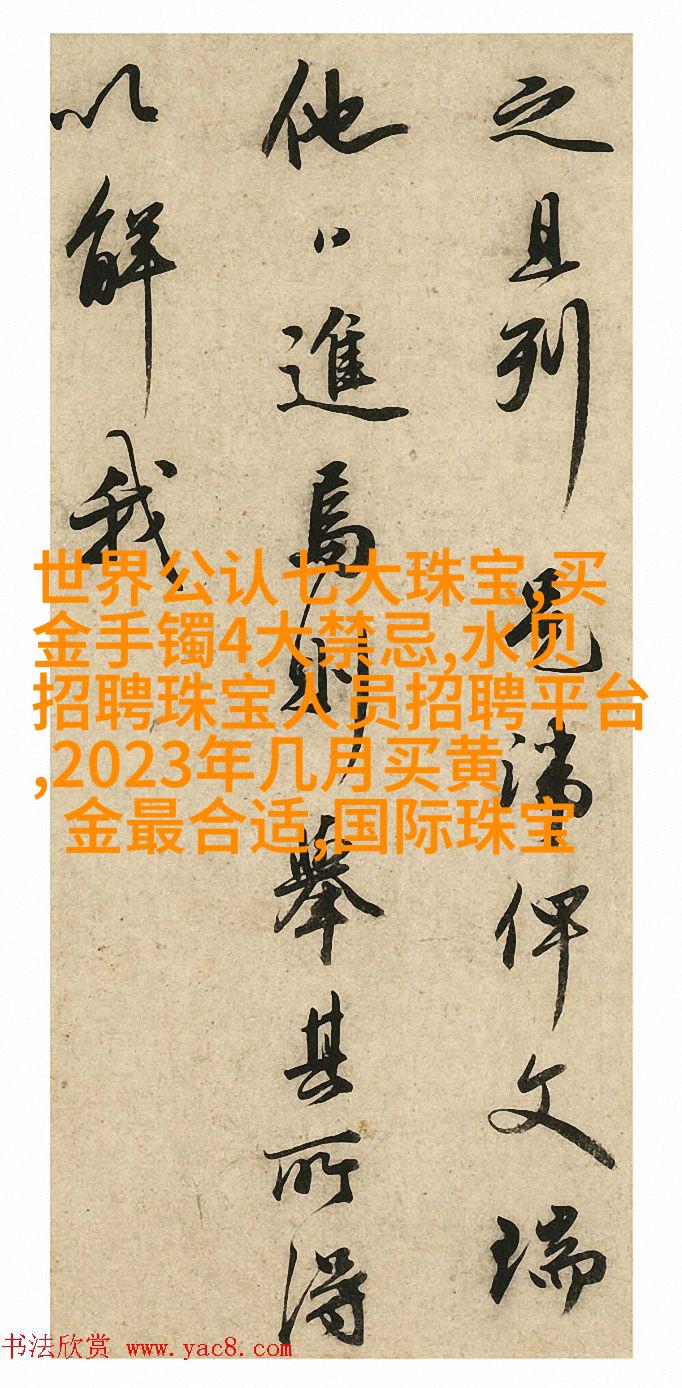 之且列滿俾文瑞
他進則舉其所得
以解我
世界公认七大珠宝,买
金手镯4大禁忌,水贝
招聘珠宝人员招聘平台
,2023年几月买黄
金最合适,国际珠宝
书法欣赏 www.yac8.com